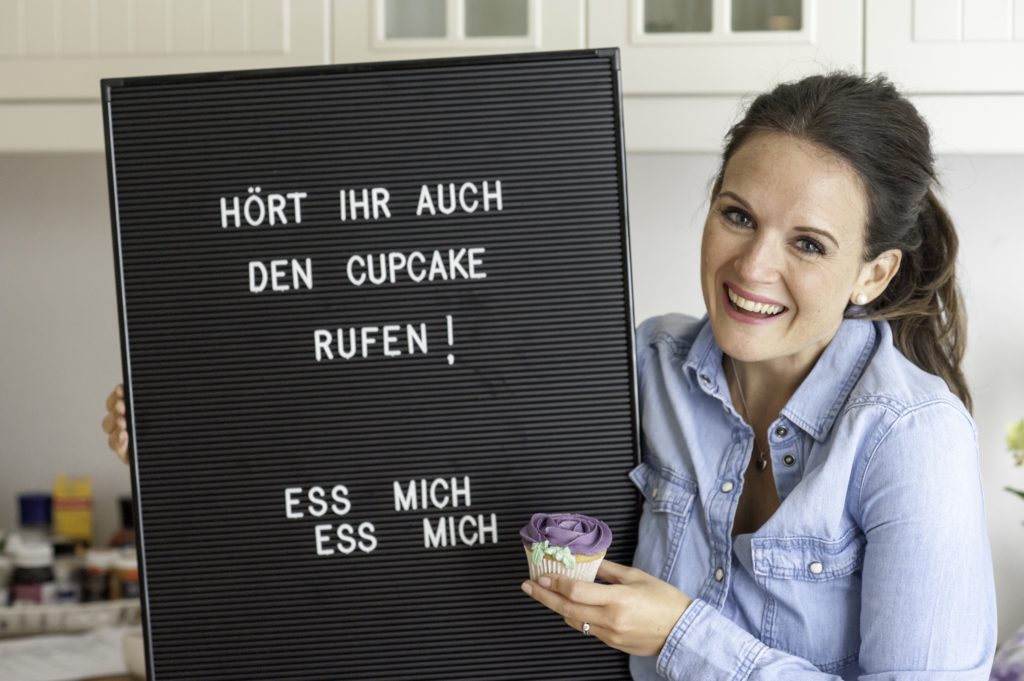 HÖRT IHR AUCH
DEN CUPCAKE
RUFEN!
ESS MICH
ESS MICH